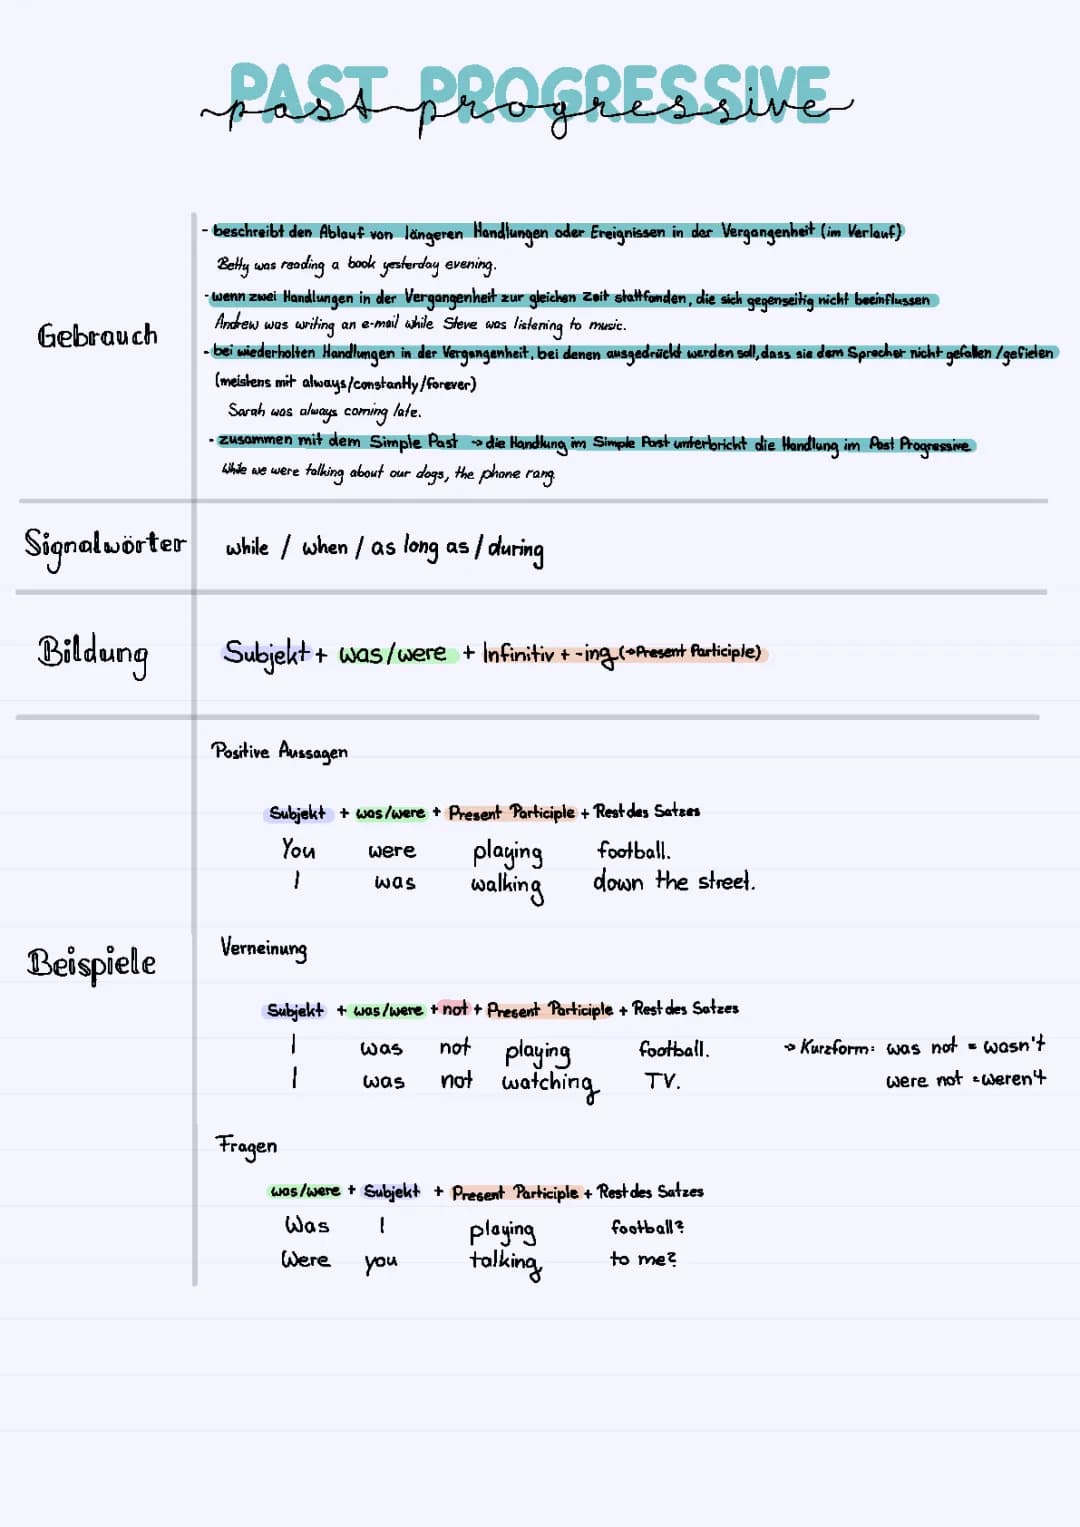 PAST PROGRESSIVE
past progressive
Gebrauch
- beschreibt den Ablauf von längeren Handlungen oder Ereignissen in der Vergangenheit (im Verlauf)
Betty was reading a book yesterday evening.
- wenn zwei Handlungen in der Vergangenheit zur gleichen Zeit stattfanden, die sich gegenseitig nicht beeinflussen
Andrew was writing an e-mail while Steve was listening to music.
- bei wiederholten Handlungen in der Vergangenheit, bei denen ausgedrückt werden soll, dass sie dem Sprecher nicht gefallen / gefielen
(meistens mit always/constantly/forever)
Sarah was always coming late.
- zusammen mit dem Simple Past → die Handlung im Simple Past unterbricht die Handlung im Past Progressive
While we were talking about our dogs, the phone rang.
Signalwörter
while / when / as long as / during
Bildung
Subjekt + was/were + Infinitiv + -ing (→Present Participle)
Beispiele
Positive Aussagen
Subjekt + was/were + Present Participle + Rest des Satzes
You were playing football.
I was walking down the street.
Verneinung
Subjekt + was/were + not + Present Participle + Rest des Satzes
I was not playing football. → Kurzform: was not = wasn't
I was not watching TV. were not = weren't
Fragen
was/were + Subjekt + Present Participle + Rest des Satzes
Was I playing football?
Were you talking to me?